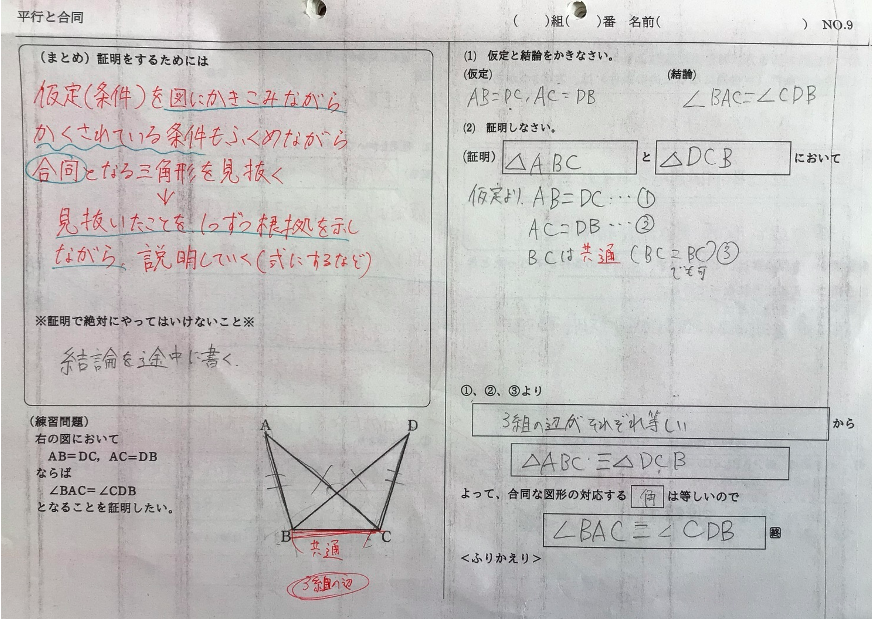 平行と合同
(　)組(　)番　名前(　　　) NO.9
(まとめ) 証明をするためには
仮定(条件)を図にかきこみながら
かくされている条件もふくめながら
合同となる三角形を見抜く
↓
見抜いたことを1つずつ根拠を示し
ながら、説明していく(式にするなど)
※証明で絶対にやってはいけないこと※
結論を途中に書く.
(練習問題)
右の図において
AB=DC, AC=DB
ならば
∠BAC=∠CDB
となることを証明したい。
A D
B C
共通
3組の辺
(1) 仮定と結論をかきなさい。
(仮定) (結論)
AB=DC, AC=DB ∠BAC=∠CDB
(2) 証明しなさい。
(証明) △ABC と △DCB において
仮定より、AB=DC…①
AC=DB…②
BCは共通 (BC=BC)③
でも可
①、②、③より
3組の辺がそれぞれ等しい から
△ABC≡△DCB
よって、合同な図形の対応する 角 は等しいので
∠BAC=∠CDB 終
<ふりかえり>